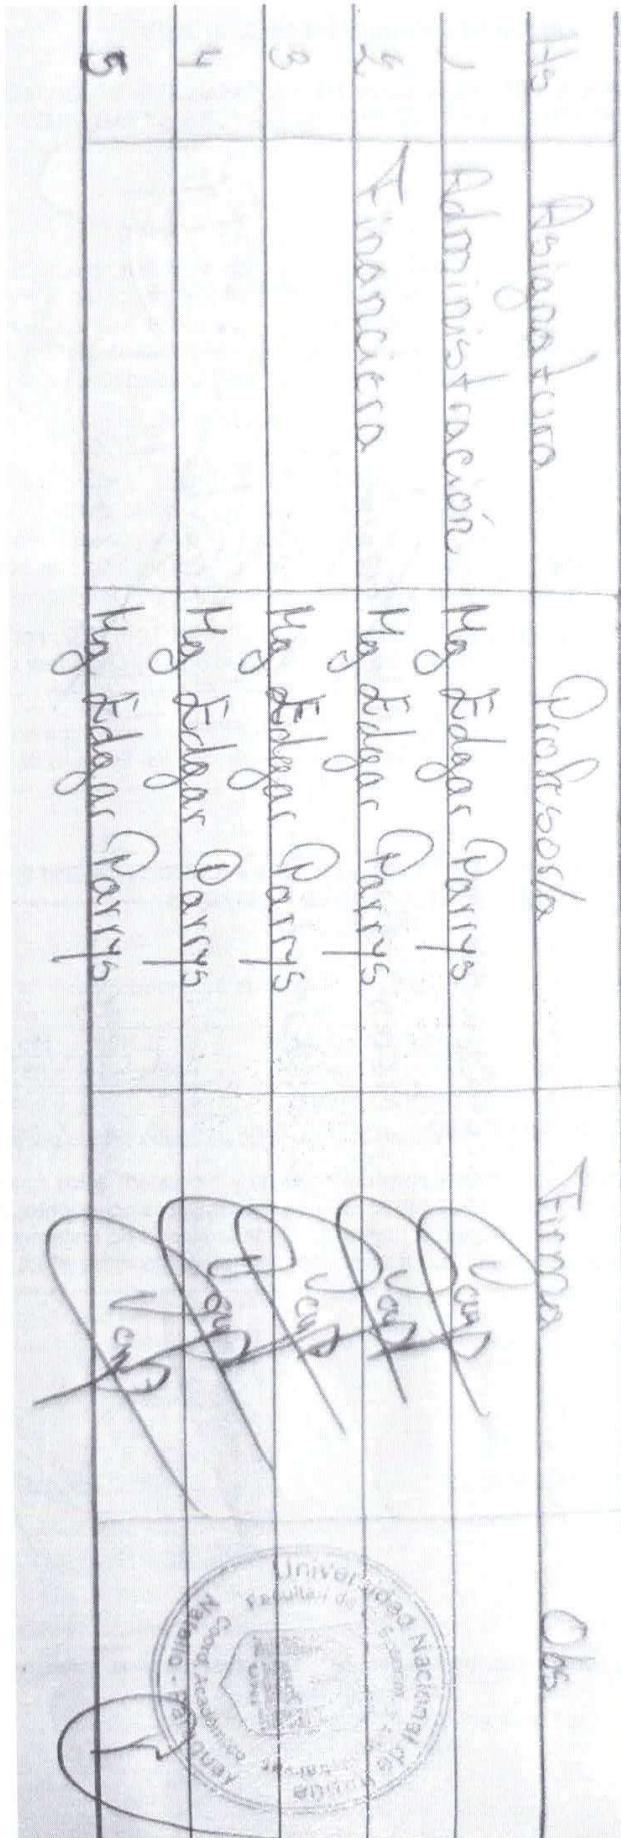 Hs Asignatura Profesor/a Firma Obs
1 Administración Mg Edgar Parrys
2 Financiera Mg Edgar Parrys
3 Mg Edgar Parrys
4 Mg Edgar Parrys
5 Mg Edgar Parrys
Universidad Nacional de
Facultad de
Coord Académica
Natalio